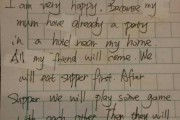 I am very happy, because my
mum have already a party
in a hotel near my home
All my friend will come. We
will eat supper first. After
supper we will play some game
with each other Then they will